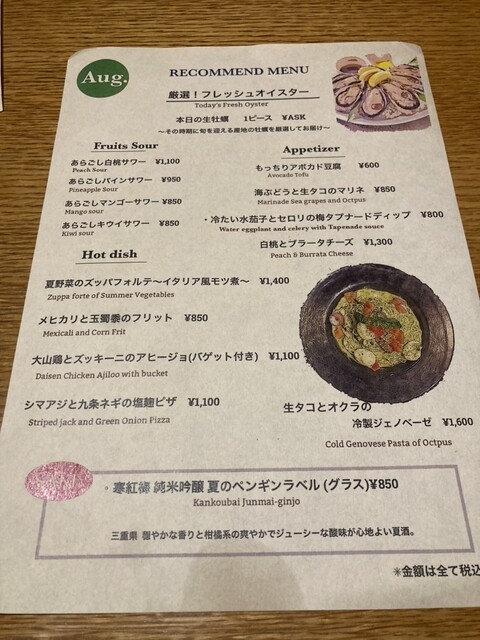 Aug.
RECOMMEND MENU
厳選！フレッシュオイスター
Today's Fresh Oyster
本日の生牡蠣 1ピース ¥ASK
～その時期に旬を迎える産地の牡蠣を厳選してお届け～
Fruits Sour
あらごし白桃サワー ¥1,100
Peach Sour
あらごしパインサワー ¥950
Pineapple Sour
あらごしマンゴーサワー ¥850
Mango sour
あらごしキウイサワー ¥850
Kiwi sour
Appetizer
もっちりアボカド豆腐 ¥600
Avocado Tofu
海ぶどうと生タコのマリネ ¥850
Marinade Sea grapes and Octpus
・冷たい水茄子とセロリの梅タプナードディップ ¥800
Water eggplant and celery with Tapenade sauce
白桃とブラータチーズ ¥1,300
Peach & Burrata Cheese
Hot dish
夏野菜のズッパフォルテ～イタリア風モツ煮～ ¥1,400
Zuppa forte of Summer Vegetables
メヒカリと玉蜀黍のフリット ¥850
Mexicali and Corn Frit
大山鶏とズッキーニのアヒージョ(バゲット付き) ¥1,100
Daisen Chicken Ajiloo with bucket
シマアジと九条ネギの塩麹ピザ ¥1,100
Striped jack and Green Onion Pizza
生タコとオクラの
冷製ジェノベーゼ ¥1,600
Cold Genovese Pasta of Octpus
・寒紅梅 純米吟醸 夏のペンギンラベル (グラス)¥850
Kankoubai Junmai-ginjo
三重県 穏やかな香りと柑橘系の爽やかでジューシーな酸味が心地よい夏酒。
※金額は全て税込